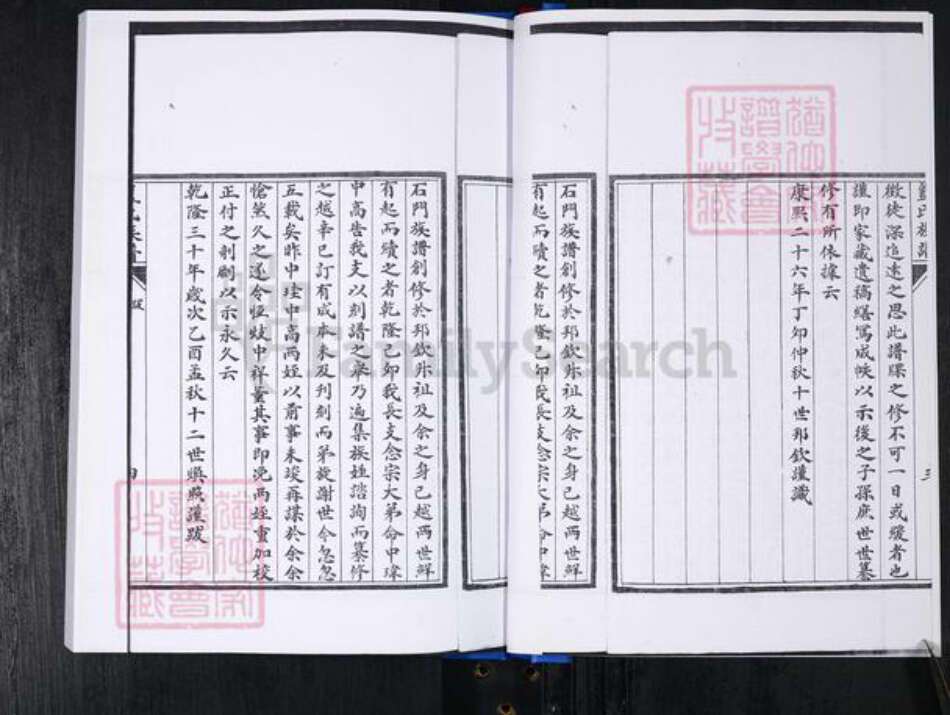 徵徒深追遠之思此譜牒之修不可一日或緩者也
謹即家藏遺稿繕寫成帙以示後之子孫庶世世纂
修有所依據云
康熙二十六年丁卯仲秋十世邦欽謹識
三
石門族譜創修於邦欽叔祖及余之身已越兩世鮮
有起而續之者乾隆己卯我長支念宗大弟命中瑋
石門族譜創修於邦欽叔祖及余之身已越兩世鮮
有起而續之者乾隆己卯我長支念宗大弟命中瑋
中高告我支以刻譜之舉乃遍集族姪諮詢而纂修
之越辛巳訂有成本未及刊刻而弟旋謝世今忽忽
五載矣昨中珪中高兩姪以前事未竣再謀於余余
愴然久之遂令恆姪中祥董其事即浼兩姪重加校
正付之剞劂以示永久云
乾隆三十年歲次乙酉孟秋十二世煥照謹跋
四
FamilySearch